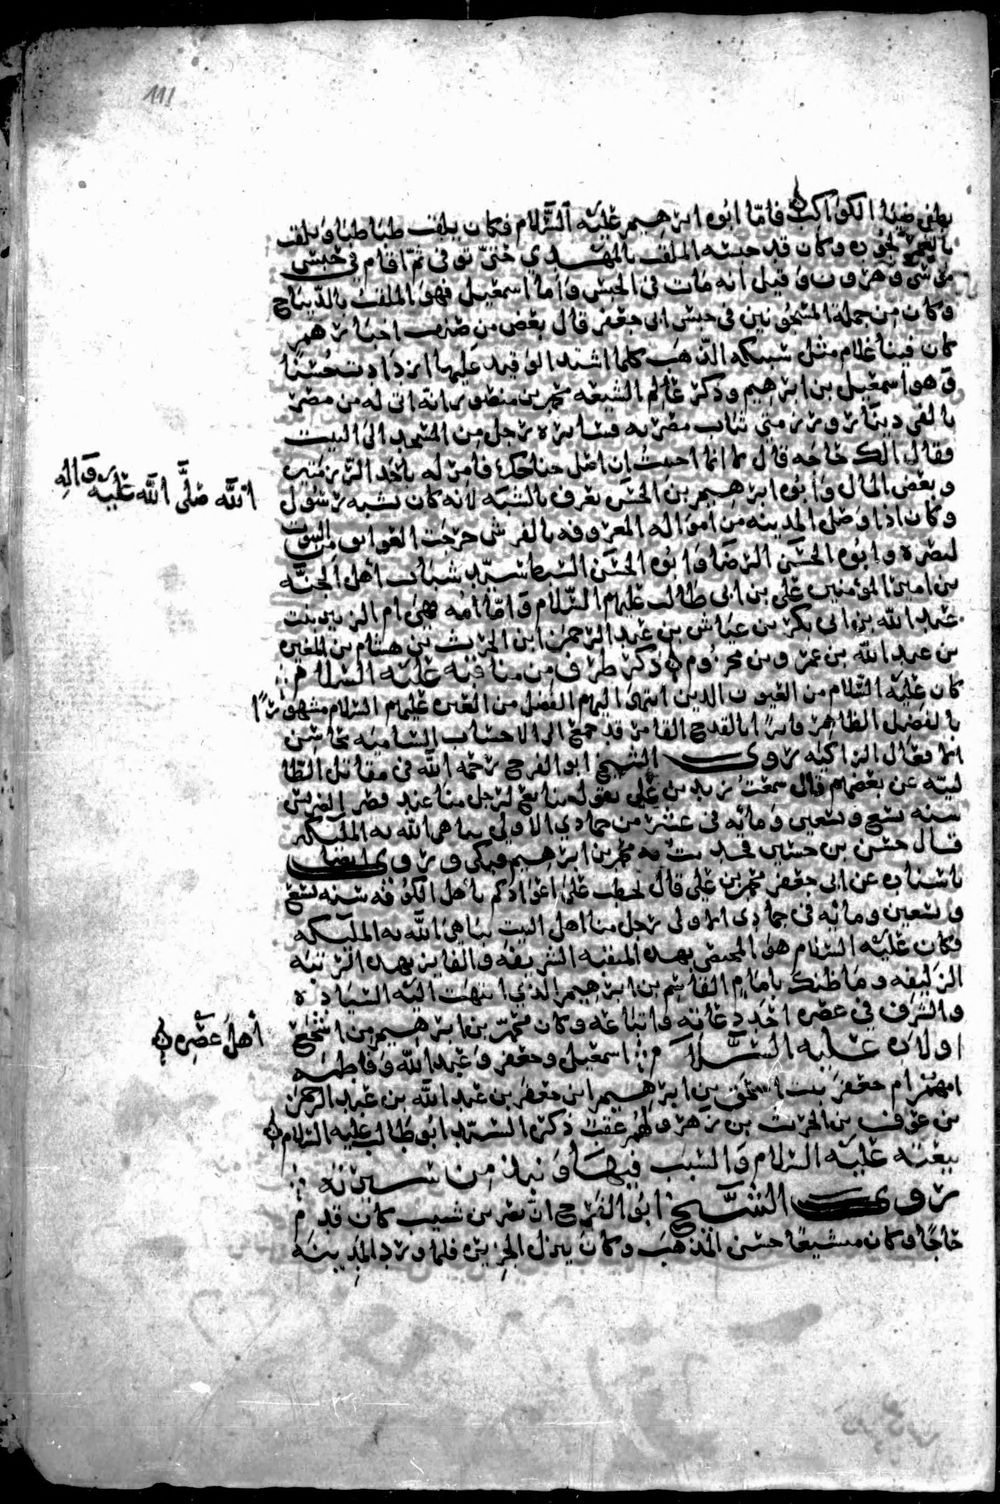 111
يطفي ضوا الكواكب فاما ابوه ابرهيم عليه السلام فكان يلقب طباطبا ويلقب
بالغمر لجوده وكان قد حبسه الملقب بالمهدي حتى توفي ثم اقام في حبس
موسى وهرون وقيل انه مات في الحبس واما اسمعيل فهو الملقب بالديباج
وكان من جملة المسجونين في حبس ابي جعفر قال بعض من صنف اخبارهم
كان فينا غلام مثل سبيكه الذهب كلما اشتد الوقيد عليها ازدادت حسنا
وهو اسمعيل بن ابرهيم وذكر عالم الشيعه محمد بن منصور انه اتى له من مصر
بالفي دينار ورزمتي ثياب مصريه فسايره رجل من المسجد الى البيت
فقال الك حاجه قال لا انما احببت ان اصل جناحك فامر له باحد الرزمتين
وبعض المال وابوه ابرهيم بن الحسن يعرف بالشبه لانه كان يشبه رسول
الله صلى الله عليه واله
وكان اذا وصل المدينه من امواله المعروفه بالفرش خرجت العواتق من البيوت
لبصره وابوه الحسن الرضا وابوه الحسن السبط سيد شباب اهل الجنه
بن امير المؤمنين علي بن ابي طالب عليهم السلام واما امه فهي ام الزبير بنت
عبد الله بن ابي بكر بن عياش بن عبد الرحمن ابن الحرث بن هشام بن المغيره
بن عبد الله بن عمرو بن مخزوم ذكر طرف من مناقبه عليه السلام
كان عليه السلام من العيون الذين انتهى اليهم الفضل من العتره عليهم السلام مشهورا
بالفضل الظاهر فايزا بالقدح القامر قد جمع الى الاحساب الساميه محاسن
الافعال الزاكيه روى الشيخ ابو الفرج رحمه الله في مقاتل الطا
لبيه عن بعضهم قال سمعت زيد بن علي يقول يبايع لرجل منا عند قصر الضرتين
سنه تسع وتسعين ومائه في عشر من جمادي الاولى يباهي الله به الملئكه
قال حسن بن حسين فحدثت به محمد بن ابرهيم فبكى وروى ايضا
باسناده عن ابي جعفر محمد بن علي قال يخطب على اعوادكم يا اهل الكوفه سنه تسع
وتسعين ومائه في جمادي الاولى رجل منا اهل البيت يباهي الله به الملئكه
فكان عليه السلام هو المختص بهذه المنقبه الشريفه والفايز بهذه الرتبه
الزليفه وما ظنك بامام القاسم بن ابرهيم الذي انتهت اليه السياده
والشرف في عصره احد دعاته واتباعه وكان محمد بن ابرهيم من اشجع
اهل عصره
اولاده عليه السلام اسمعيل وجعفر وعبد الله وفاطمه
امهم ام جعفر بنت اسحق بن ابرهيم ابن جعفر بن عبد الله بن عبد الرحمن
بن عوف بن الحرث بن زهره ولهم عقب ذكره السيد ابو طالب عليه السلام
بيعته عليه السلام والسبب فيها ونبذ من سيرته
روى الشيخ ابو الفرج ان نصر بن شبيب كان قدم
حاجا وكان متشيعا حسن المذهب وكان ينزل الجزيره فلما ورد المدينه